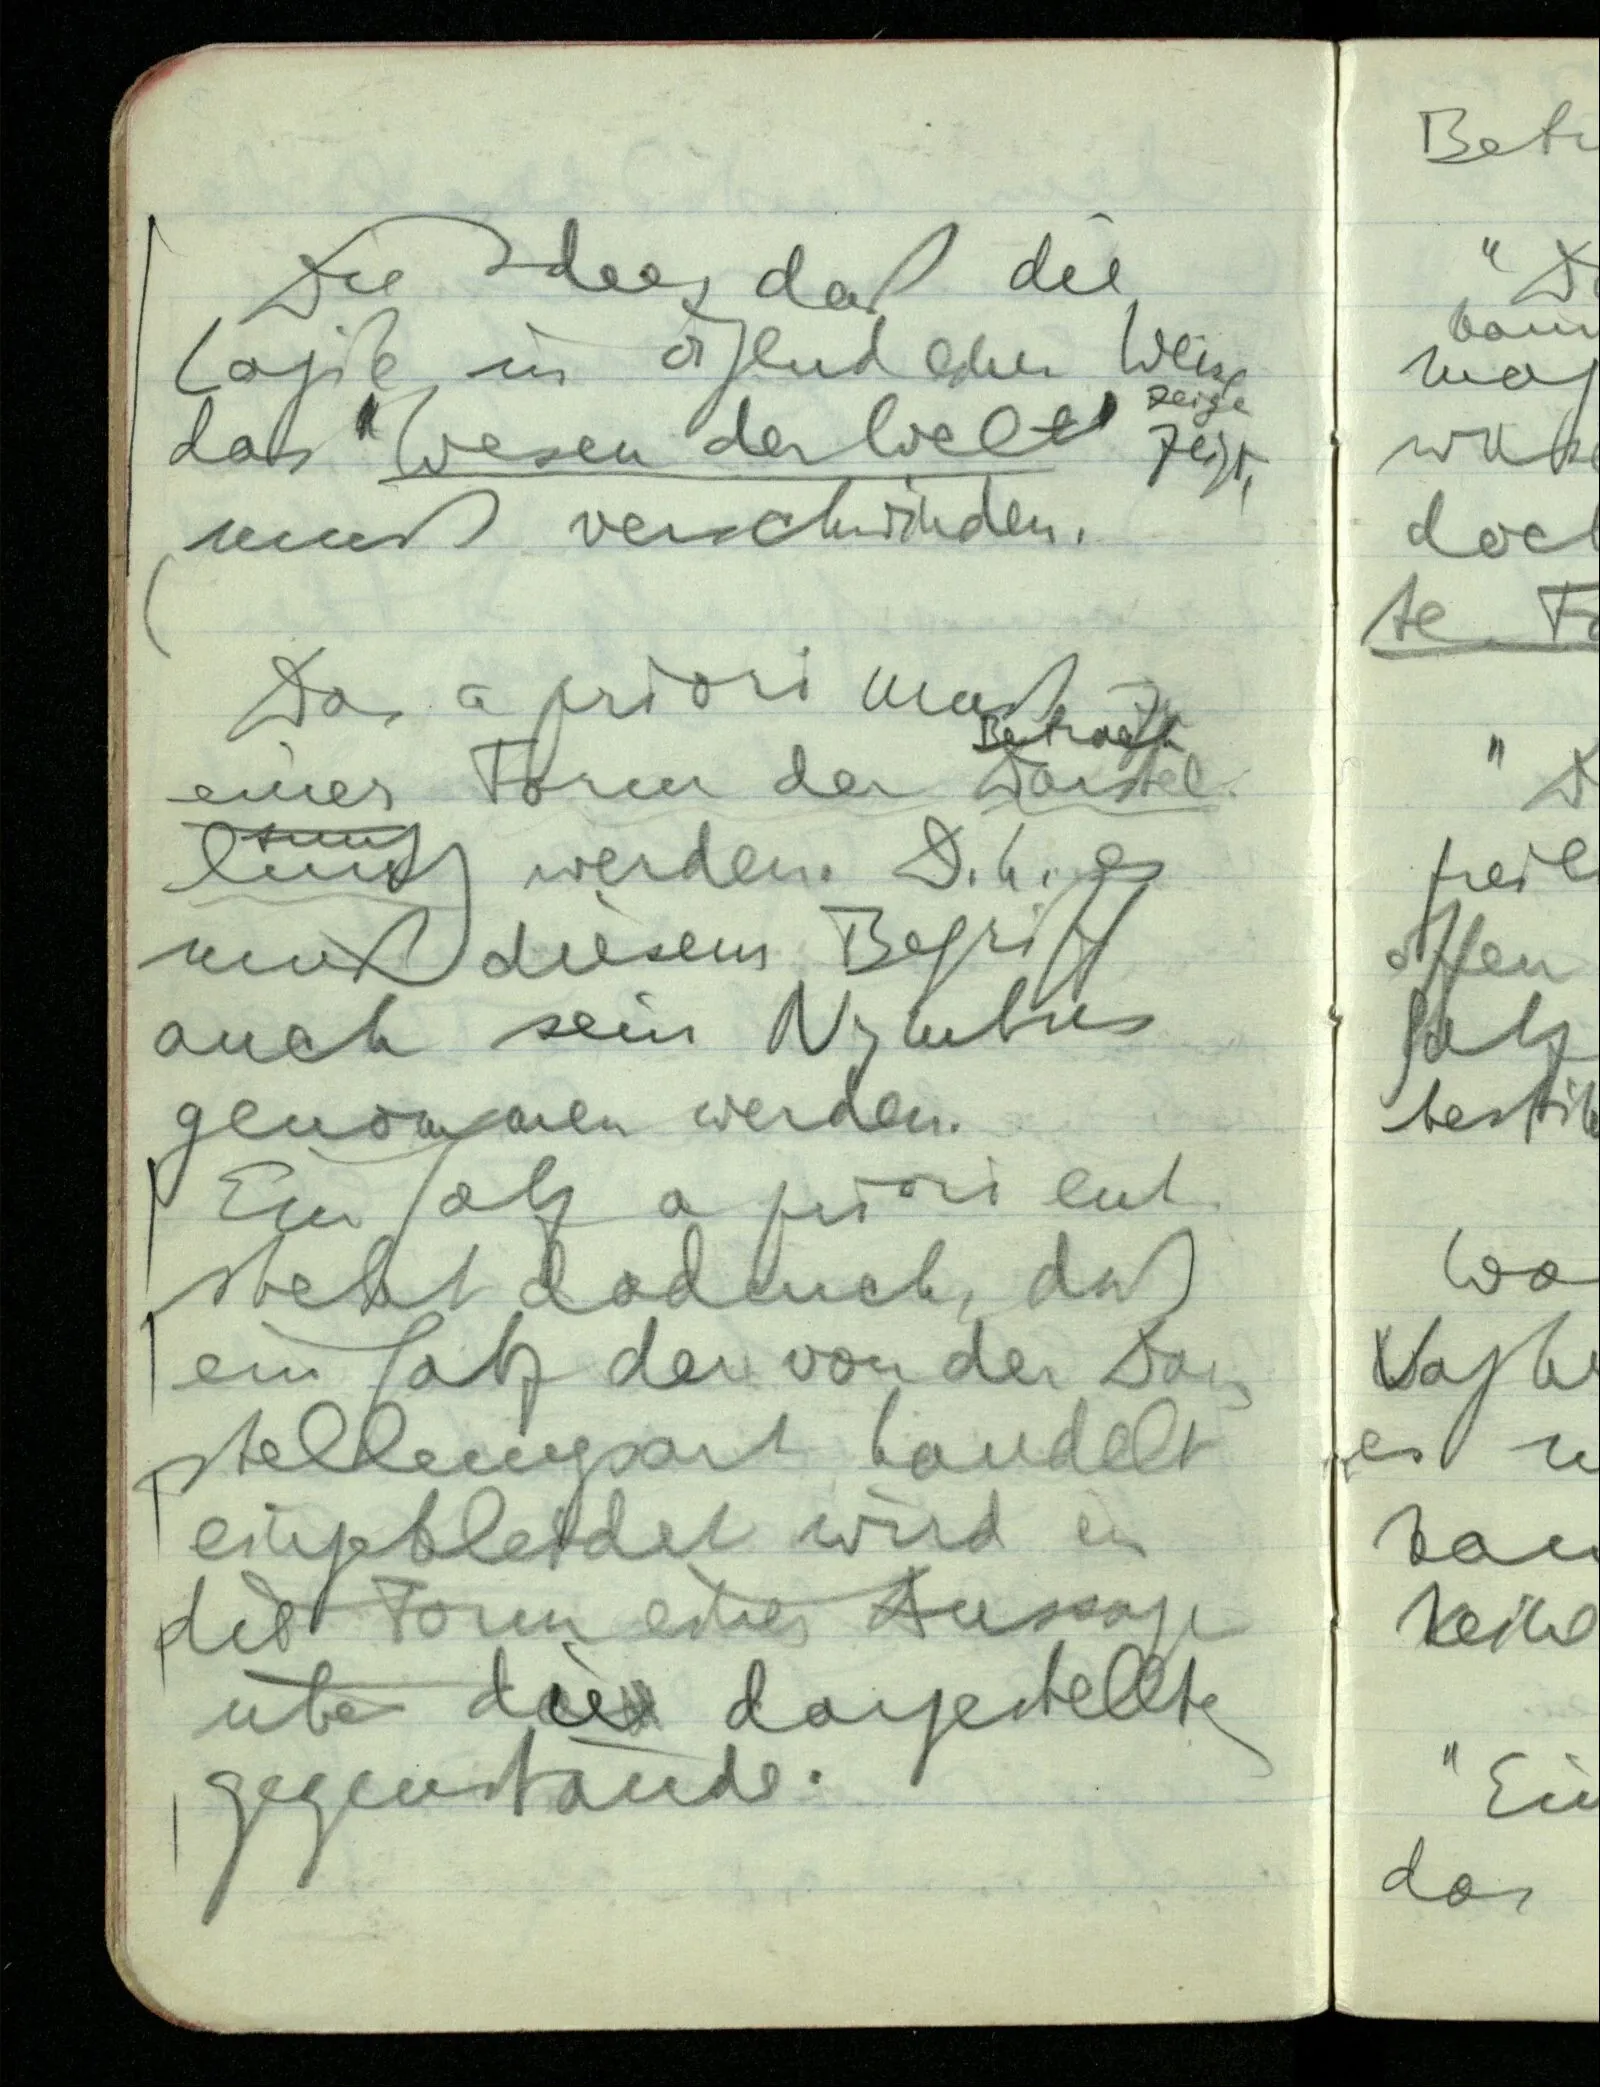 Die Idee, daß die
Logik in irgend einer Weise
zeige
das "Wesen der Welt" zeigt,
muß verschwinden.
Das a priori muß
Betrach
einer Form der Darstel-
tung
lung werden. D.h. es
muß diesem Begriff
auch sein Nymbus
genommen werden.
Ein Satz a priori ent-
steht dadurch, daß
ein Satz der von der Dar-
stellungsart handelt
eingekleidet wird in
die Form einer Aussage
über die dargestellte
gegenstände.
Betr
" Da
kann
doch
te
" D
frei
offen
Satz
Wa
es
" Ein
das